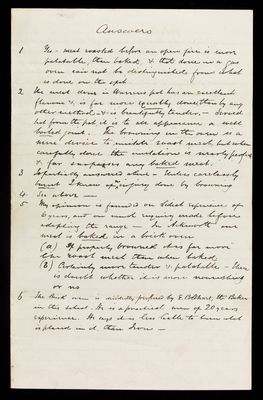 Answers
1 Yes - meat roasted before an open fire is more
palatable, than baked, & that done in a gas
oven can not be distinguished from what
is done on the spit
2 The meat done in Warrens pot has an excellent
flavour & is far more equally done, than by any
other method, & is beautifully tender, - served
hot from the pot it is to all appearance a well
boiled joint. The browning in the oven is a
mere device to imitate roast meat but when
carefully done the imitation is nearly perfect
& far surpasses any baked meat.
3 Is partially answered alone - Unless carelessly
burnt I know of no injury done by browning
4. See above -
5 My opinion is founded on School experience of
6 years, and on much enquiry made before
adopting the range - In Ackworth our
meat is baked in a brick oven
(a) If properly browned it is far more
like roast meat than when baked
(b) Certainly more tender & palatable - there
is doubt whether it is more nourishing
or no
6 The Brick oven is decidedly preferred by E. the Baker
in this school. He is a practical man of 20 years
experience. He says it is less liable to burn what
is placed in it than Iron -